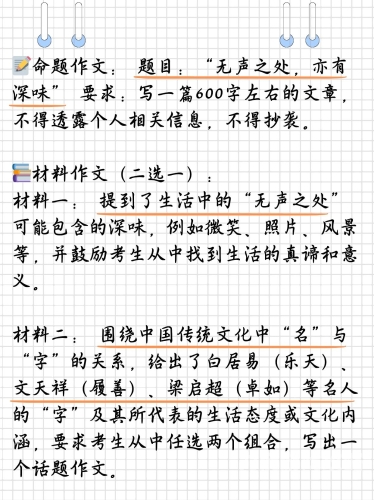 命题作文：题目：“无声之处，亦有
深味” 要求：写一篇600字左右的文章，
不得透露个人相关信息，不得抄袭。
材料作文（二选一）：
材料一：提到了生活中的“无声之处”
可能包含的深味，例如微笑、照片、风景
等，并鼓励考生从中找到生活的真谛和意
义。
材料二：围绕中国传统文化中“名”与
“字”的关系，给出了白居易（乐天）、
文天祥（履善）、梁启超（卓如）等名人
的“字”及其所代表的生活态度或文化内
涵，要求考生从中任选两个组合，写出一
个话题作文。